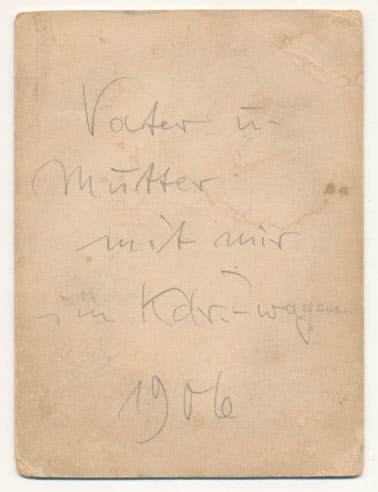 Vater u
Mutter
mit mir
im Kdr.-wagen
1906